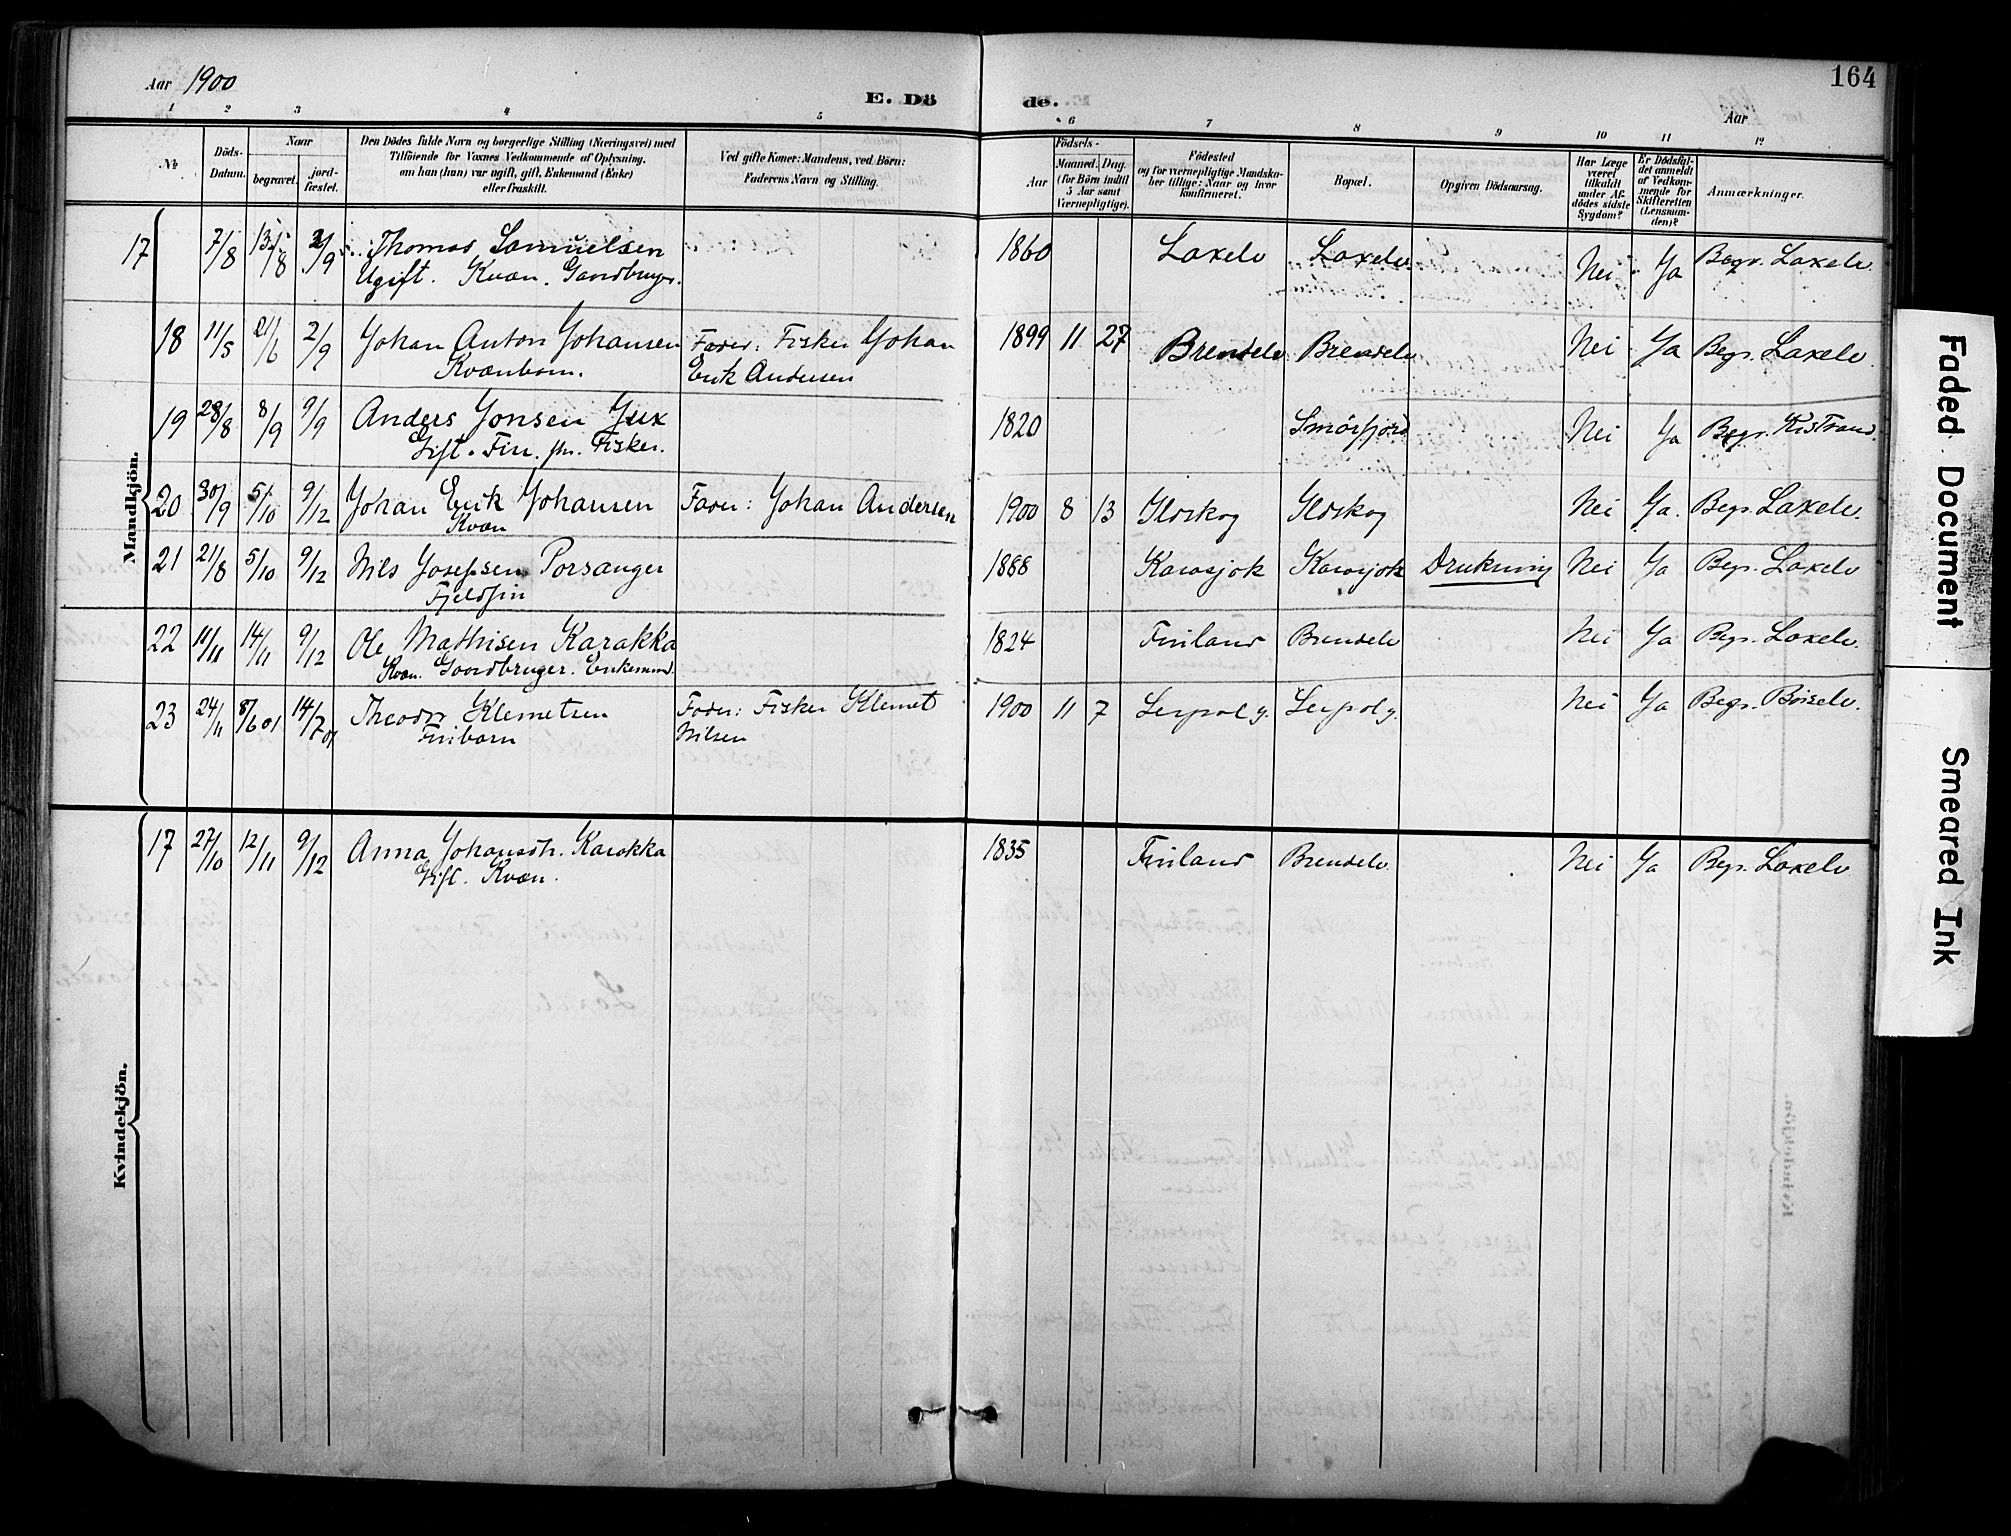 164
Aar 1900
E. Döde.
Aar
1 2 3 4 5 6 7 8 9 10 11 12
№
Döds-Datum.
Naar
begravet.
jord-fæstet.
Den Dödes fulde Navn og borgerlige Stilling (Næringsvei) med
Tilföiende for Voxnes Vedkommende af Oplysning,
om han (hun) var ugift, gift, Enkemand (Enke)
eller fraskilt.
Ved gifte Koner: Mandens, ved Börn:
Faderens Navn og Stilling.
Födsels-
Aar
Maaned. Dag.
(for Börn indtil
5 Aar samt
Værnepligtige).
Födested
og for værnepligtige Mandska-
ber tillige: Naar og hvor
konfirmeret.
Bopæl.
Opgiven Dödsaarsag.
Har Læge
været
tilkaldt
under Af-
dödes sidste
Sygdom?
Er Dödsfal-
det anmeldt
af Vedkom-
mende for
Skifteretten
(Lensman-
den)?
Anmærkninger.
Mandkjön.
17 7/8 13/8 2/9 Thomas Samuelsen 1860 Laxelv Laxelv Nei Ja Begr. Laxelv.
Ugift. Kvæn. Gaardbruger.
18 11/5 21/6 2/9 Johan Anton Johansen Fader: Fisker Johan 1899 11 27 Brendelv Brendelv Nei Ja Begr. Laxelv.
Kvænbarn. Erik Andersen
19 28/8 8/9 9/9 Anders Jonsen Jux 1820 Smörfjord Nei Ja Begr. Kistrand.
Gift. Fin. Fisker.
20 30/9 5/10 9/12 Johan Erik Johansen Fader: Johan Andersen 1900 8 13 Ildskog Ildskog Nei Ja. Begr. Laxelv.
Kvæn
21 21/8 5/10 9/12 Nils Josefsen Porsanger 1888 Karasjok Karasjok Drukning Nei Ja Begr. Laxelv
Fjeldfin
22 11/11 14/11 9/12 Ole Mathisen Karakka 1824 Finland Brendelv Nei Ja Begr. Laxelv.
Kvæn. Gaardbruger. Enkemand.
23 24/11 8/6 01 14/7 01 Theodor Klemetsen Fader: Fisker Klemet 1900 11 7 Leirpoll Leirpoll Nei Ja Begr. Börselv.
Finbarn Nilsen
Kvindekjön.
17 27/10 12/11 9/12 Anna Johansdtr. Karakka 1835 Finland Brendelv. Nei Ja Begr. Laxelv
Gift. Kvæn.
Faded Document
Smeared Ink